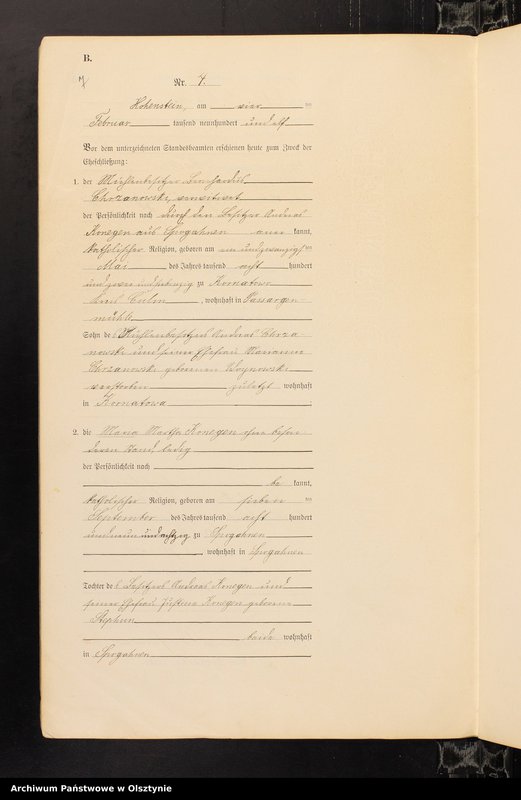 B.
Nr. 4.
Hohenstein, am vier ten
Februar tausend neunhundert und elf
Vor dem unterzeichneten Standesbeamten erschienen heute zum Zweck der
Eheschließung:
1. der Mühlenbesitzer Bernhardus
Chrzanowski, verwitwet
der Persönlichkeit nach durch den Besitzer Andreas
Konegen aus Sprgahnen aner kannt,
katholischer Religion, geboren am ein und zwanzigsten
Mai des Jahres tausend acht hundert
und zwei und siebenzig zu Kornatowo
Kreis Culm, wohnhaft in Passargen-
mühle
Sohn des Mühlenbesitzers Andreas Chrza-
nowski und seiner Ehefrau Marianna
Chrzanowski geborenen Woynowski
verstorben zuletzt wohnhaft
in Kornatowo
2. die Maria Martha Konegen ohne beson-
deren Stand, ledig
der Persönlichkeit nach
be kannt,
katholischer Religion, geboren am sieben ten
September des Jahres tausend acht hundert
und neun und achtzig zu
wohnhaft in
Tochter des Besitzers Andreas Konegen und
seiner Ehefrau Justina Konegen geborene
Stephan
beide wohnhaft
in
Archiwum Państwowe w Olsztynie